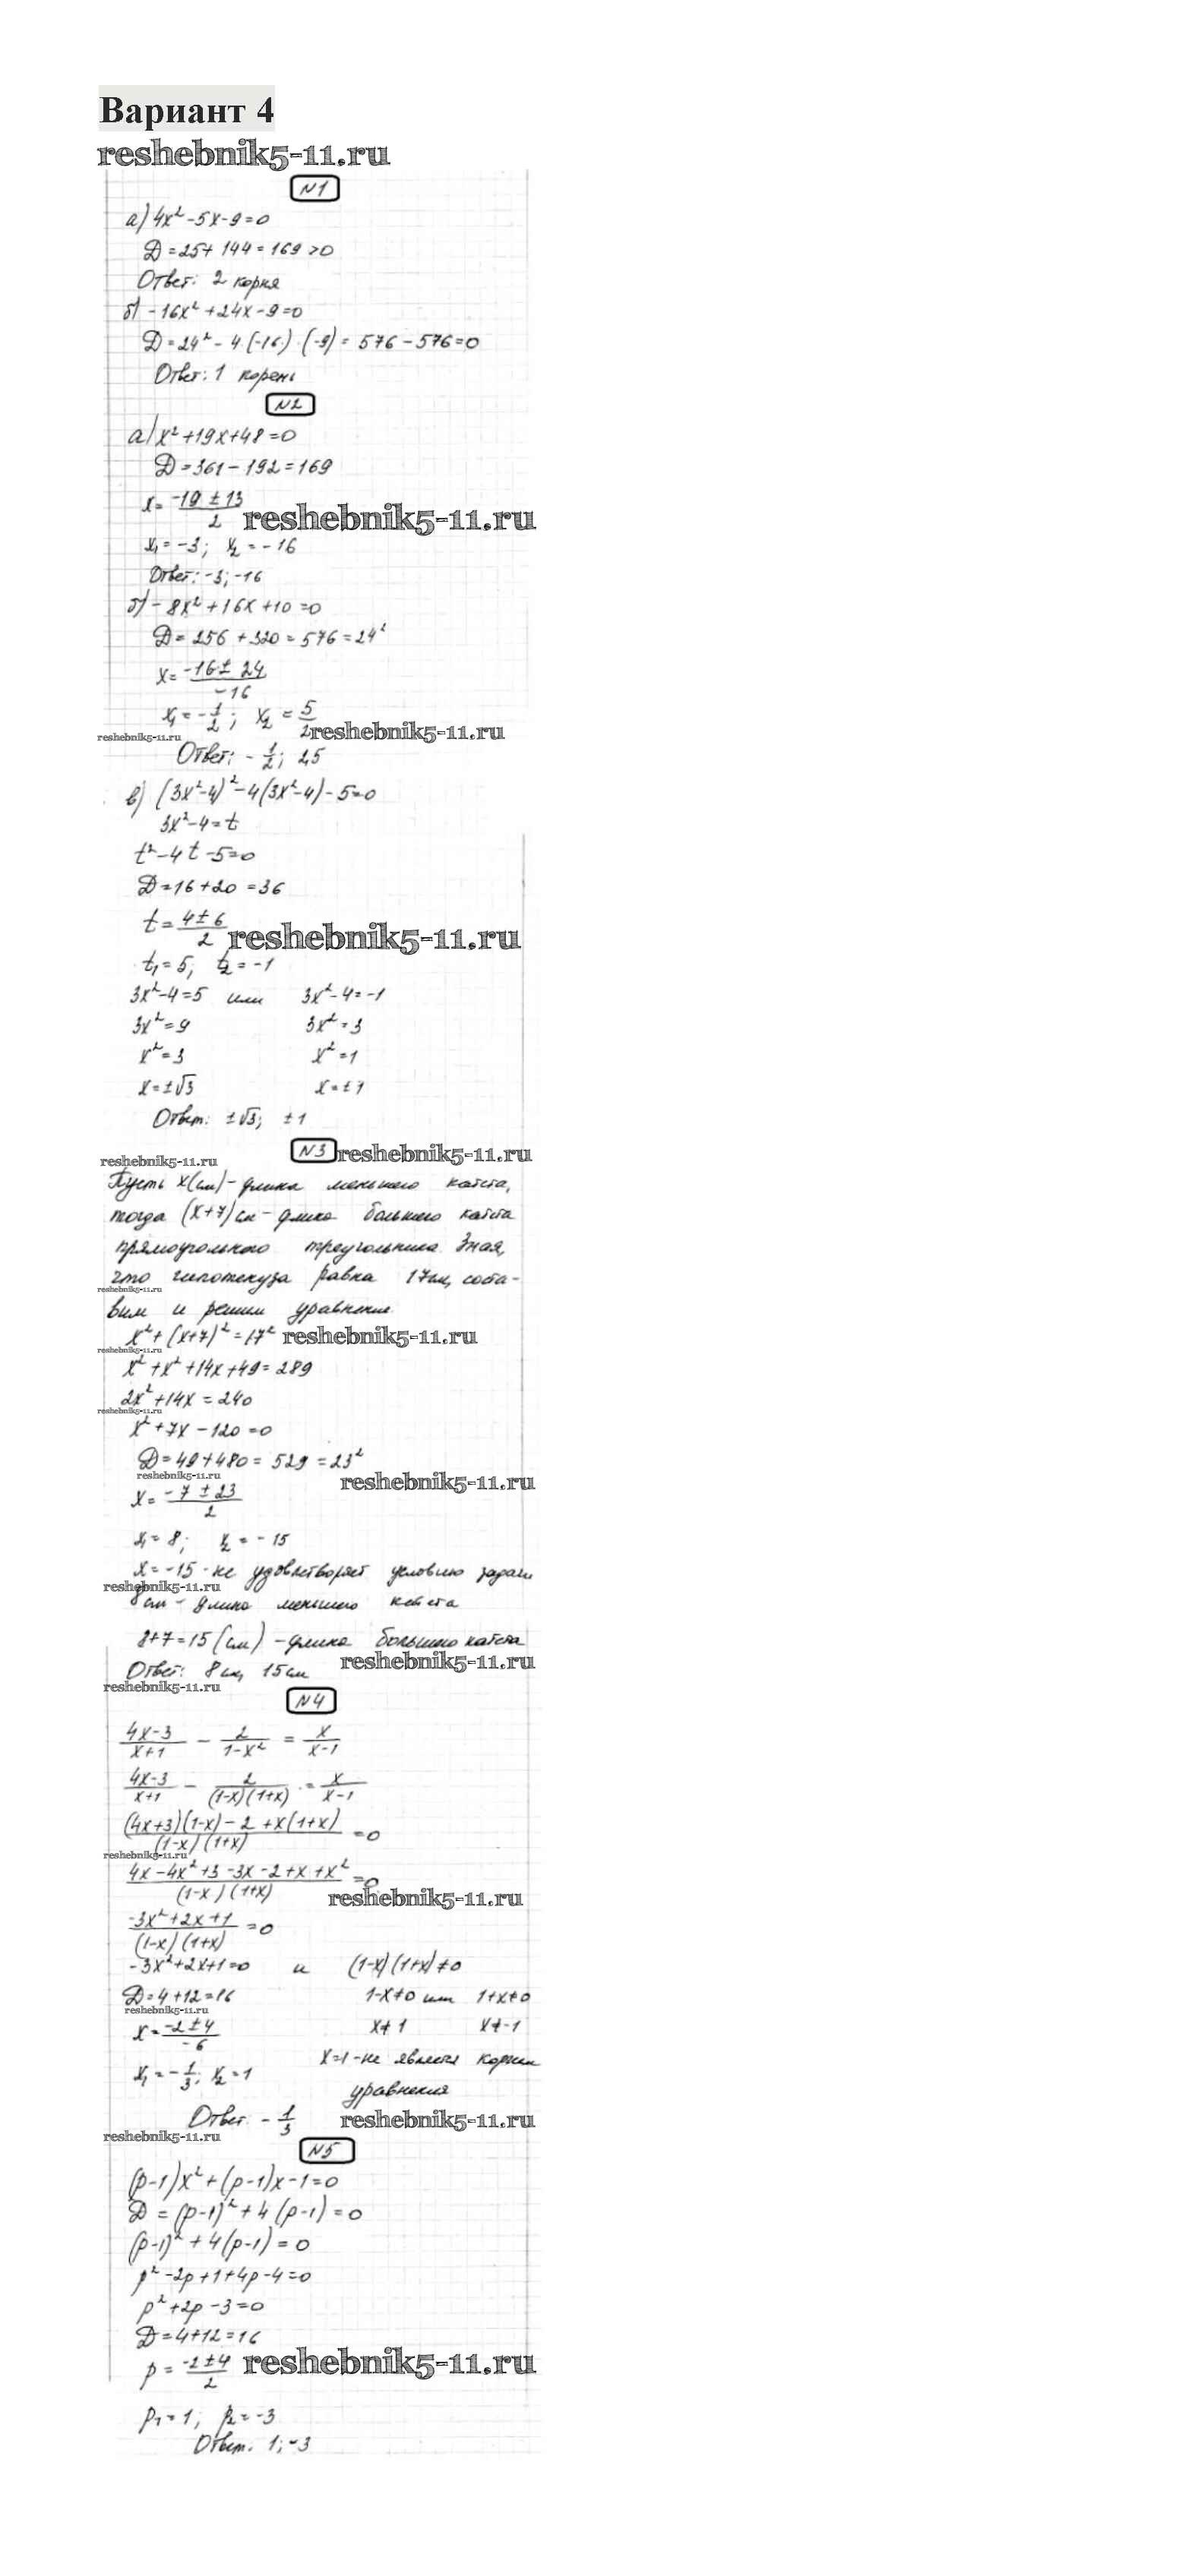 Вариант 4
reshebnik5-11.ru
N1
а) 4x² -5x-9=0
D=25+144=169>0
Ответ: 2 корня
б) -16x²+24x-9=0
D=24²-4·(-16)·(-9)=576-576=0
Ответ: 1 корень
N2
а) x²+19x+48=0
D=361-192=169
x= (-19±13)/2 reshebnik5-11.ru
x₁=-3; x₂=-16
Ответ: -3; -16
б) -8x²+16x+10=0
D=256+320=576=24²
x= (-16±24)/-16
x₁=-1/2; x₂=5/2 reshebnik5-11.ru
reshebnik5-11.ru
Ответ: -1/2; 2,5
в) (3x²-4)²-4(3x²-4)-5=0
3x²-4=t
t²-4t-5=0
D=16+20=36
t= (4±6)/2 reshebnik5-11.ru
t₁=5; t₂=-1
3x²-4=5 или 3x²-4=-1
3x²=9 3x²=3
x²=3 x²=1
x=±√3 x=±1
Ответ: ±√3; ±1
N3 reshebnik5-11.ru
reshebnik5-11.ru
Пусть x(см)-длина меньшего катета,
тогда (x+7)см-длина большего катета
прямоугольного треугольника. Зная,
что гипотенуза равна 17см, соста-
reshebnik5-11.ru
вим и решим уравнение
x²+(x+7)²=17² reshebnik5-11.ru
reshebnik5-11.ru
x²+x²+14x+49=289
2x²+14x=240
reshebnik5-11.ru
x²+7x-120=0
D=49+480=529=23²
reshebnik5-11.ru reshebnik5-11.ru
x= (-7±23)/2
x₁=8; x₂=-15
x=-15-не удовлетворяет условию задачи
reshebnik5-11.ru
8см - длина меньшего катета
8+7=15(см) -длина большего катета
reshebnik5-11.ru
Ответ: 8см, 15см
reshebnik5-11.ru
N4
(4x-3)/(x+1) - 2/(1-x²) = x/(x-1)
(4x-3)/(x+1) - 2/((1-x)(1+x)) = x/(x-1)
((4x+3)(1-x)-2+x(1+x))/((1-x)(1+x)) =0
reshebnik5-11.ru
(4x-4x²+3-3x-2+x+x²)/((1-x)(1+x)) =0
reshebnik5-11.ru
(-3x²+2x+1)/((1-x)(1+x)) =0
-3x²+2x+1=0 и (1-x)(1+x)≠0
D=4+12=16 1-x≠0 или 1+x≠0
reshebnik5-11.ru
x= (-2±4)/-6 x≠1 x≠-1
x₁=-1/3; x₂=1 x=1-не является корнем
уравнения
Ответ: -1/3 reshebnik5-11.ru
reshebnik5-11.ru
N5
(p-1)x²+(p-1)x-1=0
D=(p-1)²+4(p-1)=0
(p-1)²+4(p-1)=0
p²-2p+1+4p-4=0
p²+2p-3=0
D=4+12=16
p= (-2±4)/2 reshebnik5-11.ru
p₁=1; p₂=-3
Ответ: 1; -3